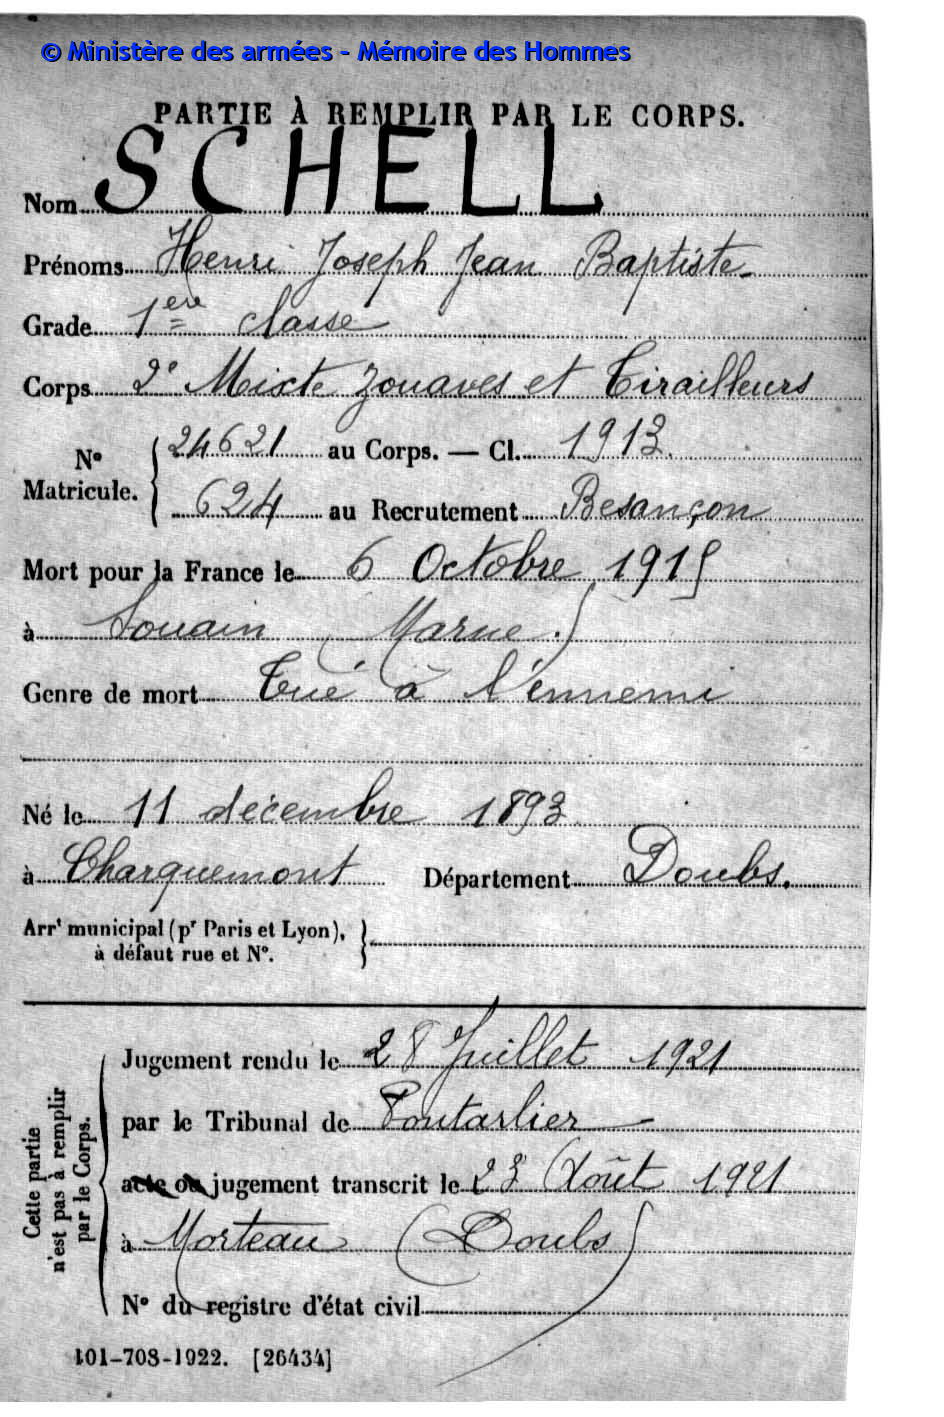 © Ministère des armées - Mémoire des Hommes
PARTIE À REMPLIR PAR LE CORPS.
Nom SCHELL
Prénoms Henri Joseph Jean Baptiste
Grade 1ère classe
Corps 2e Mixte Zouaves et Tirailleurs
No Matricule. { 24621 au Corps. — Cl. 1913.
624 au Recrutement Besançon
Mort pour la France le 6 Octobre 1915
à Souain (Marne.)
Genre de mort Tué à l'ennemi
Né le 11 décembre 1893
à Charquemont Département Doubs.
Arrt municipal (pr Paris et Lyon), à défaut rue et No. }
Cette partie n'est pas à remplir par le Corps.
Jugement rendu le 28 Juillet 1921
par le Tribunal de Pontarlier
acte ou jugement transcrit le 23 Août 1921
à Morteau (Doubs)
No du registre d'état civil
101-708-1922. [26434]